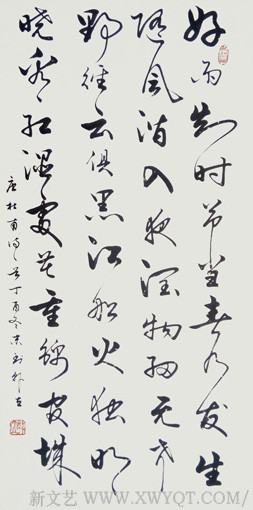 好雨知时节当春乃发生
随风潜入夜润物细无声
野径云俱黑江船火独明
晓看红湿处花重锦官城
唐杜甫诗一首丁酉冬
新文艺 www.XWYQT.COM/